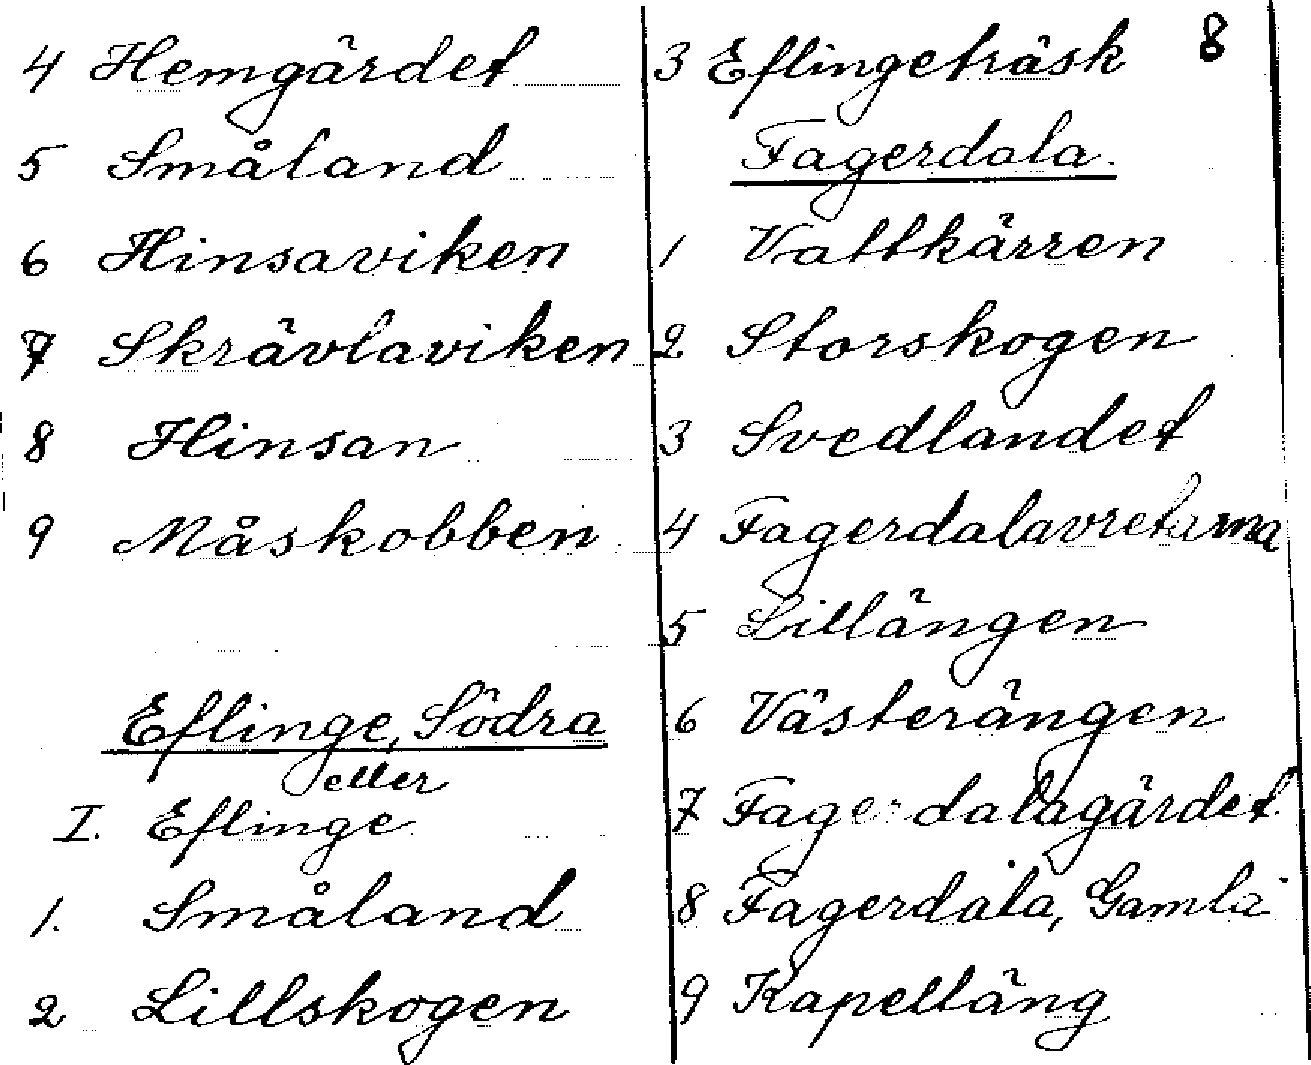 4 Hemgärdet
5 Småland
6 Hinsaviken
7 Skrävlaviken
8 Hinsan
9 Måskobben
Eflinge, Södra
eller
I. Eflinge
1. Småland
2 Lillskogen
8
3 Eflingeträsk
Fagerdala.
1 Vattkärren
2 Storskogen
3 Svedlandet
4 Fagerdalavretarna
5 Lillängen
6 Västerängen
7 Fagerdalagärdet
8 Fagerdala, Gamla
9 Kapelläng